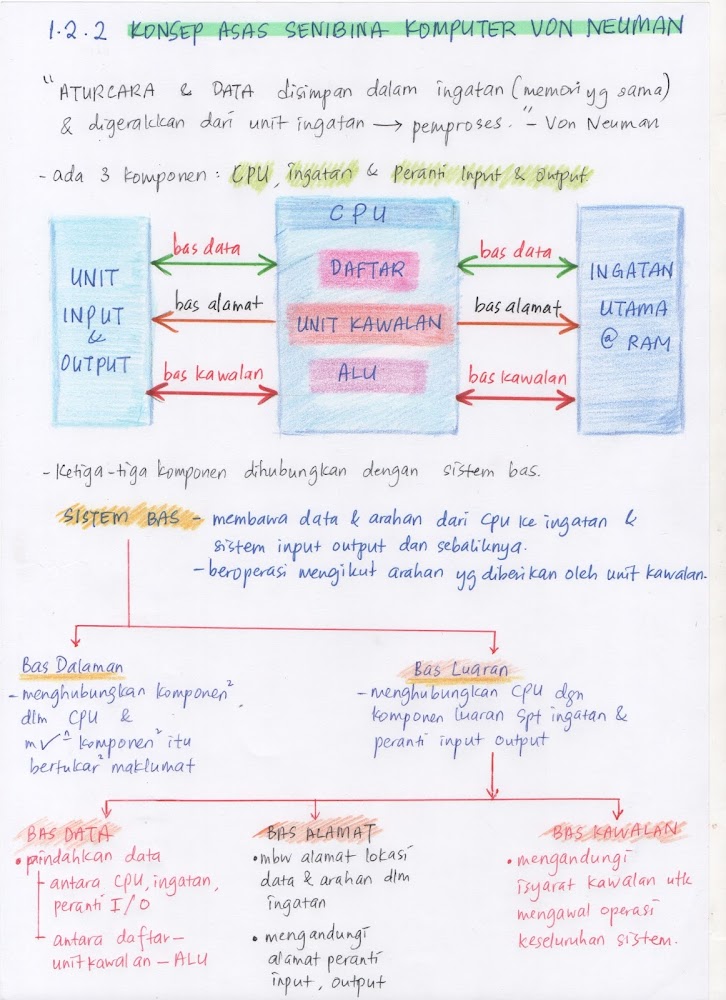 1.2.2 KONSEP ASAS SENIBINA KOMPUTER VON NEUMAN
"ATURCARA & DATA disimpan dalam ingatan (memori yg sama)
& digerakkan dari unit ingatan → pemproses." - Von Neuman
- ada 3 komponen : CPU, ingatan & Peranti Input & Output
UNIT
INPUT
&
OUTPUT
bas data
bas alamat
bas kawalan
CPU
DAFTAR
UNIT KAWALAN
ALU
bas data
bas alamat
bas kawalan
INGATAN
UTAMA
@ RAM
- Ketiga-tiga komponen dihubungkan dengan sistem bas.
SISTEM BAS - membawa data & arahan dari CPU ke ingatan &
sistem input output dan sebaliknya.
- beroperasi mengikut arahan yg diberikan oleh unit kawalan.
Bas Dalaman
- menghubungkan komponen²
dlm CPU &
komponen² itu
bertukar² maklumat
Bas Luaran
- menghubungkan CPU dgn
komponen luaran spt ingatan &
peranti input output
BAS DATA
• pindahkan data
- antara CPU, ingatan,
peranti I/O
- antara daftar-
unit kawalan - ALU
BAS ALAMAT
• mbw alamat lokasi
data & arahan dlm
ingatan
• mengandungi
alamat peranti
input, output
BAS KAWALAN
• mengandungi
isyarat kawalan utk
mengawal operasi
keseluruhan sistem.